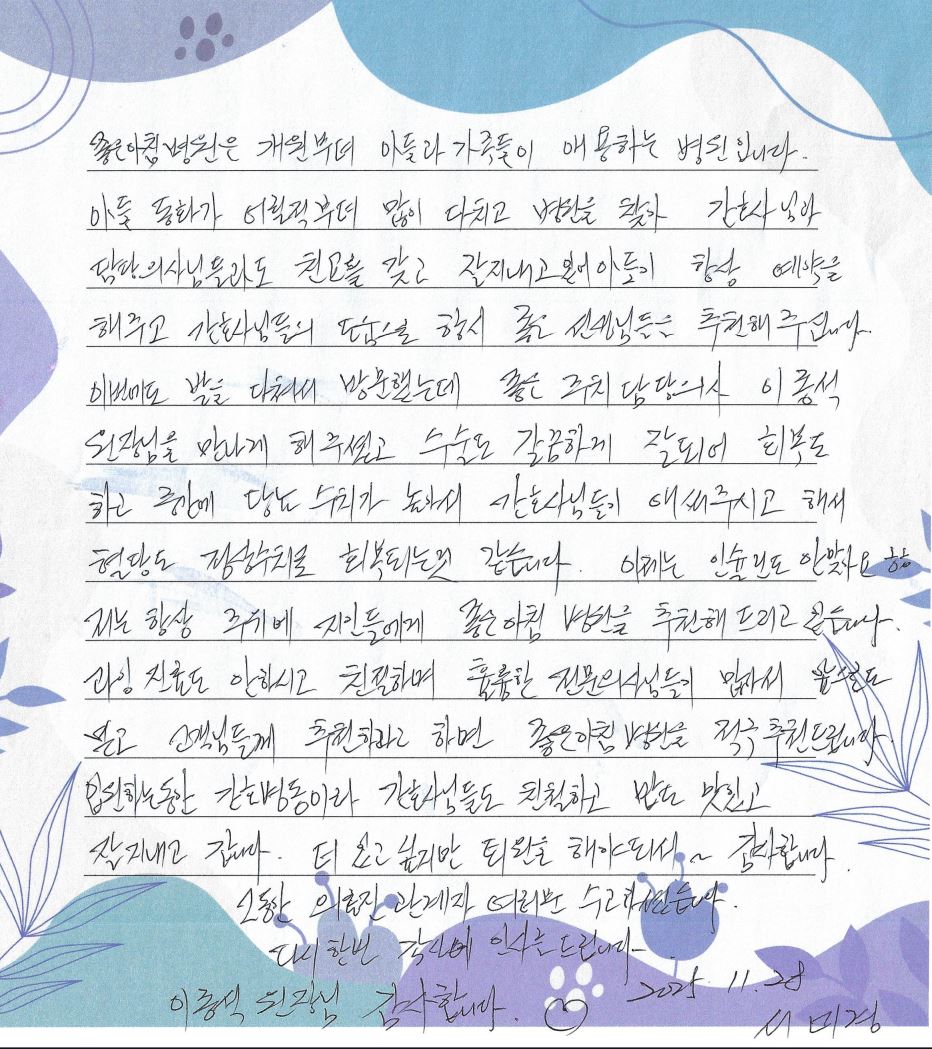 좋은아침병원은 개원부터 아들과 가족들이 애용하는 병원입니다.
아들 동화가 어릴적부터 많이 다치고 병원을 찾아 간호사님과
담당의사님들과도 친교를 갖고 잘지내고 있어 아들이 항상 예약을
해주고 간호사님들의 도움으로 항시 좋은 선생님들은 추천해 주십니다.
이번에도 발을 다쳐서 방문했는데 좋은 주치 담당의사 이종석
원장님을 만나게 해주셨고 수술도 깔끔하게 잘되어 회복도
하고 중간에 당뇨 수치가 높아서 간호사님들이 애써주시고 해서
혈당도 정상수치로 회복되는것 같습니다. 이제는 인슐린도 안맞아요 ㅎㅎ
저는 항상 주위에 지인들에게 좋은아침 병원을 추천해 드리고 있습니다.
과잉 진료도 안하시고 친절하며 훌륭한 전문의사님들이 많아서
믿고 고객님들께 추천하라고 하면 좋은아침 병원을 적극추천드립니다.
입원하는동안 간호병동이라 간호사님들도 친절하고 밥도 맛있고
잘지내고 갑니다. 더 있고 싶지만 퇴원을 해야되서 ~ 감사합니다.
그동안 의료진 관계자 여러분 수고하셨습니다.
다시 한번 감사에 인사를 드립니다-
이종석 원장님 감사합니다. 2025. 11. 28
서 미경